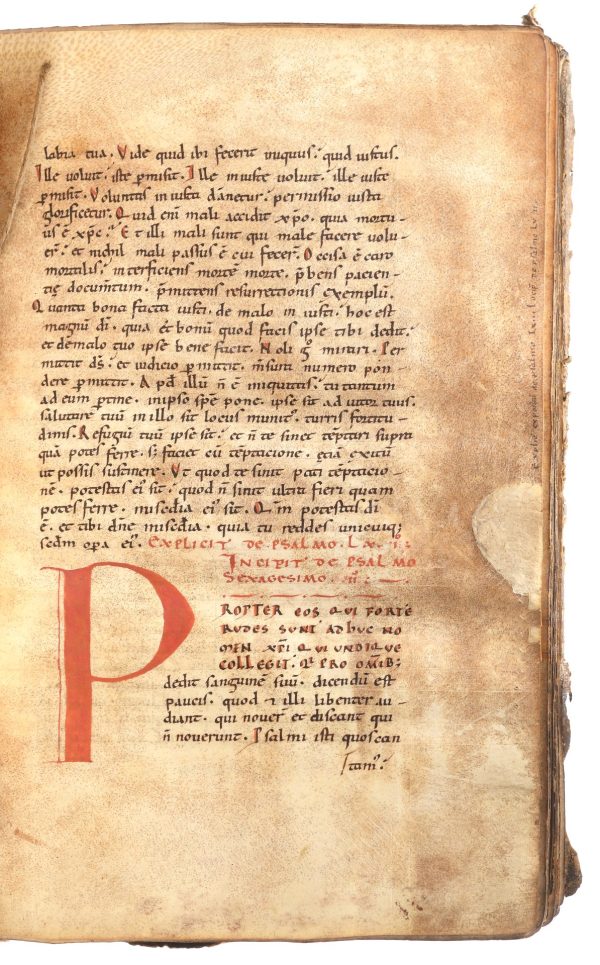 labia tua. Vide quid ibi fecerit iniquus. quid iustus.
Ille voluit. iste ꝑmisit. Ille iniuste voluit. ille iuste
ꝑmisit. Voluntas iniusta dānetur. ꝑmissio iusta
glorificetur. Quid enī mali accidit xp̄o. quia mortu-
us ē xp̄c. Et illi mali sunt qui male facere volu-
er̄. et nichil mali passus ē cui fecer̄. Occisa ē caro
mortalis. interficiens mortē morte. p̄bens pacien-
tię documtum. p̄mittens resurrectionis exemplū.
Quanta bona facta iusti. de malo iniusti. hoc est
magnū dī. quia et bonū quod facis ipse tibi dedit.
et de malo tuo ipse bene facit. Noli gͦ mirari. Per
mittit ds̄. et iudicio ꝑmittit. msura numero pon-
dere ꝑmittit. Apd illū n̄ ē iniquitas. tu tantum
ad eum ꝑtine. in ipso spē pone. ipse sit adiutor tuus.
salutare tuū in illo sit locus munitꝰ. turris fortitu-
dinis. Refugiū tuū ipse sit. et n̄ te sinet tēptari supra
quā potes ferre. s; faciet cū tēptacione. ęciā exitū
ut possis sustinere. Vt quod te sinit pati tēptacio-
nē. potestas eiꝰ sit. quod n̄ sinit ultra fieri quam
potes ferre. misedia eiꝰ sit. Qm̄ potestas dī
ē. et tibi dn̄e misedia. quia tu reddes unicuiq;
scdm opa eiꝰ. Explicit de psalmo. Lx. i.
Incipit de psalmo
sexagesimo. ii.
Propter eos qui forte
rudes sunt adhuc no
men xp̄i qui undique
collegit. qi pro omīb;
dedit sanguinē suū. dicendū est
paucis. quod et illi libenter au-
diant. qui nover̄ et discant qui
n̄ noverunt. Psalmi isti quos can
tamꝰ.